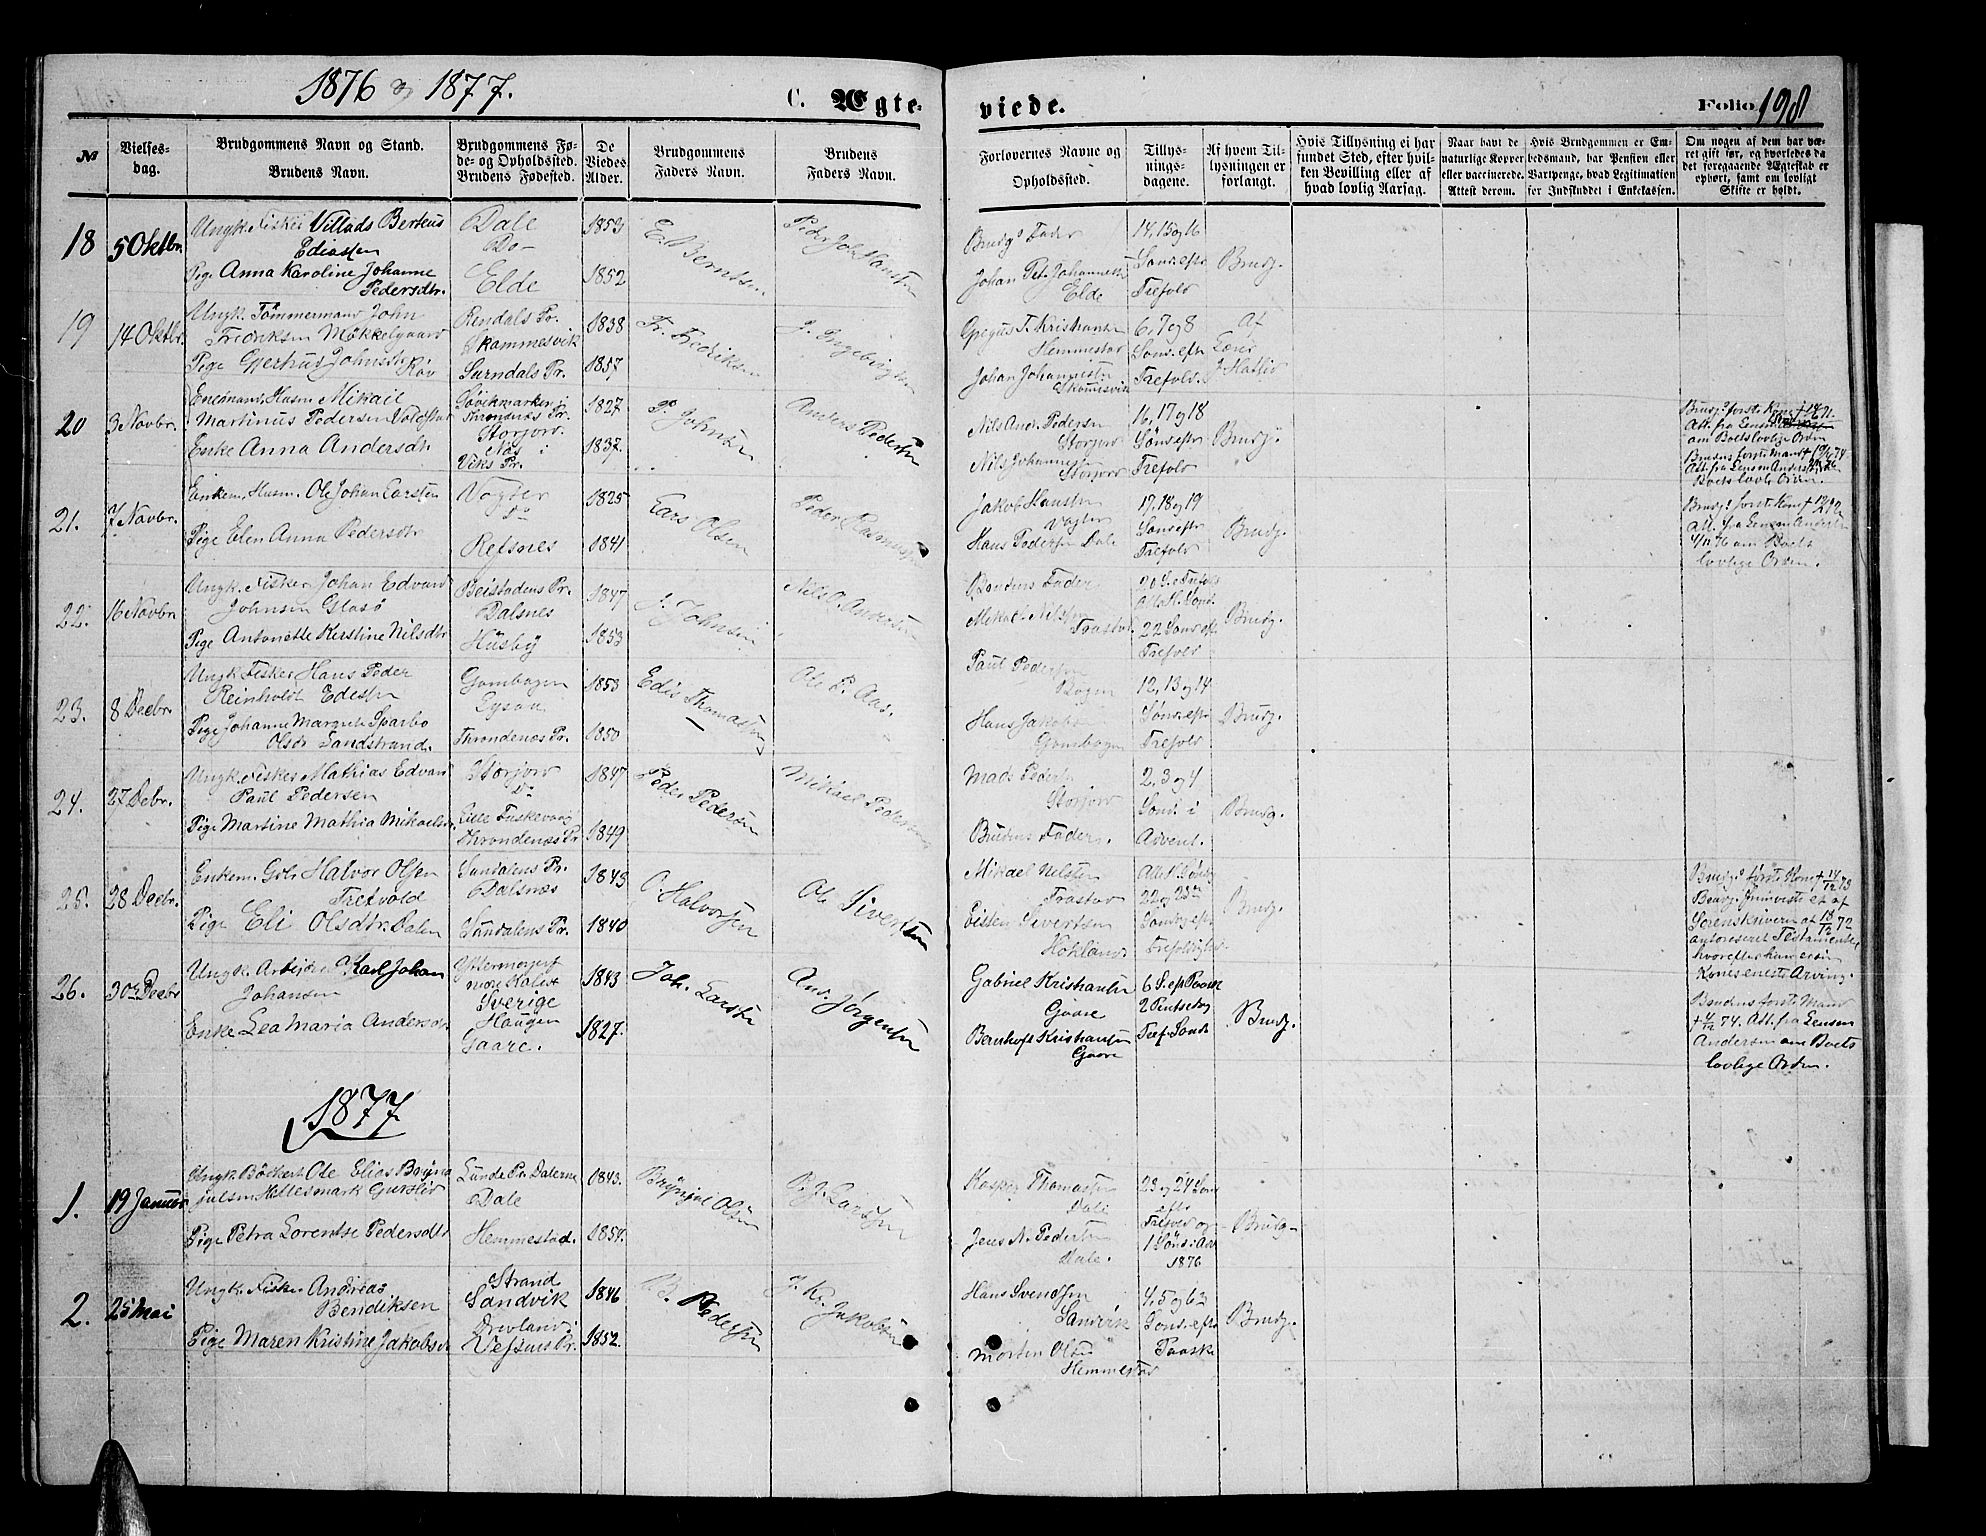 1876 og 1877.
C. Ægteviede.
Folio 198
№
Vielsesdag.
Brudgommens Navn og Stand.
Brudens Navn.
Brudgommens Føde- og Opholdssted.
Brudens Fødested.
De Viedes Alder.
Brudgommens Faders Navn.
Brudens Faders Navn.
Forlovernes Navne og Opholdssted.
Tillysningsdagene.
Af hvem Tillysningen er forlangt.
Hvis Tillysning ei har fundet Sted, efter hvilken Bevilling eller af hvad lovlig Aarsag.
Naar havt de naturlige Kopper eller vaccinerede. Attest derom.
Hvis Brudgommen er Embedsmand, har Pension eller Vartpenge, hvad Legitimation for Indskuddet i Enkekassen.
Om nogen af dem har været gift før, og hvorledes da det foregaaende Ægteskab er ophørt, samt om lovligt Skifte er holdt.
18
5 Oktbr.
Ungk. Fisker Villads Berteus
Ediassen
Pige Anna Karoline Johanne
Pedersdtr.
Dale
Do
Elde
1853
1852
E. Berntsen
Peder Johannsen
Brudg.s Fader
Johan Pet. Johannesen
Elde
14, 15 og 16
Sönd. eftr
Trefold
Brudg.
19
14 Oktbr.
Ungk. Tömmermand John
Fredriksen Mökkelgaard
Pige Gjertrud Johnsdtr
Rendals Pr.
Skammesvik
Surndals Pr.
1838
1857
Fr. Fredriksen
J. Ingebrigtsen
Kristiansen
Hemmestad
Johan Johannesen
6, 7 og 8
Sönd. eftr
Trefold.
Af
20
3 Novbr.
Enkemand, Husm. Mikail
Martinus Pedersen
Enke Anna Andersdtr
Throndenæs Pr.
Storjord.
Næs i
Viks Pr.
1827
1837.
P. Johnsen
Anders Pedersen
Nils And. Pedersen
Storjord
Nils Johannesen
Storjord
16, 17 og 18
Sönd. eftr
Trefold
Brudg.
Brudg.s förste Kone † 1871.
Att. fra Lensm.
om Boets lovlige Orden
Brudens förste Mand †
Att. fra Lensm. Andersen
Boets lovl. Orden.
21.
7 Novbr.
Enkem. Husm. Ole Johan Larsen
Pige Elen Anna Pedersdtr
Vogter
Do
Refsnes
1825
1841
Lars Olsen
Peder Rasmus
Jakob Hansen
Vogter
Hans Pedersen Dale
17, 18 og 19
Sönd. eftr
Trefold
Brudg.
Brudg.s förste Kone †
Att. fra Lensm. Andersen
4/11 76 om Boets
lovlige Orden.
22.
16 Novbr
Ungk. Fisker Johan Edvard
Johnsen Glasö
Pige Antonette Kerstine Nilsdtr
Beistadens Pr.
Dalsnes
Husby
1847
1853
J. Johnsen
Nils O. Andersen
Brudens Fader
Mikal Nilssen
Trastad.
22 Sönd. eftr
Trefold
Brudg.
23.
8 Decbr.
Ungk. Fisker Hans Peder
Reinholdt Edissen
Pige Johanne Margrete Sparbo
Olsdr Sandstrand.
Gombogen
Throndenæs Pr.
1853
1850
Edis Thomassen
Ole P. Aas.
Paul Pedersen
Bogen
Hans Jakobs
Gombogen
12, 13 og 14
Sönd. eftr
Trefold.
Brudg.
24.
27 Debr.
Ungk. Fisker Mathias Edvard
Paul Pedersen
Pige Martine Mathea Mikaelsdr.
Storjord
Do
Lille Fuskevaag
Throndenæs Pr
1847
1849
Peder Pedersen
Mikael Pedersen
Mads Pedersen
Storjord
Brudens Fader.
2, 3 og 4
Sönd. i
Advent.
Brudg.
25.
28 Decbr.
Enkem. Halvor Olsen
Tretvold
Pige Eli Olsdtr. Dalen
Sundalens Pr.
Dalsnæs
Sundalens Pr.
1845
1840
O. Halvorsen
Ole Sivertsen
Mikael Nilsen
Trastad
Eisten Sivertsen
Hokland
22 og 23de
Sönd. eftr
Brudg.
Brudg.s förste Kone † 14/12 73
Sorenskriveren af 13/12 72
Testamente
hvorefter han er sin
Kones eneste Arving.
26.
30te Decbr
Ungk. Arbeider Karl Johan
Johansen
Enke Lea Maria Andersdtr
Sverige
Haugen
Gaare.
1843
1827.
Joh. Larsen
And. Jørgensen
Gabriel Kristiansen
Gaare
Bernhoft Kristiansen
Gaare
6 S. eft Paaske
2 Pintsedag
Tref. Sönd.
Brudg.
Brudens förste Mand
† 74. Att. fra Lensm
Andersen om Boets
lovlige Orden.
1877
1.
19 Januar
Ungk. Bödkert Ole Elias Brynjulsen Hellesmark
Pige Petra Lorentse Pedersdtr
Dale
Hemmestad.
1843.
1854.
Brynjul Olsen
P. J. Larsen
Kasper Thomassen
Dale
Jens N. Pedersen
Dale.
23 og 24 Sönd
eftr
Trefold og
1 Sönd i Adv
1876
Brudg.
2.
25 Mai
Ungk. Fisker Andreas
Bendiksen
Pige Maren Kristine Jakobsdr
Strand
Sandvik
Drevland i
Vefsens Pr.
1846
1852.
B. Pedersen
J. Kr. Jakobsen
Hans Svendsen
Sandvik
Morten Olsen
Hemmestad
4, 5 og 6
Sönd. eftr
Paaske
Brudg.